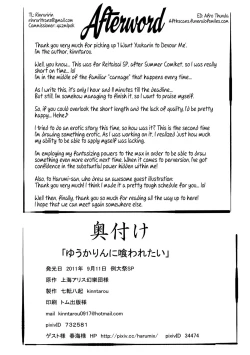 TL: Kinruririn
Afterword
Thank you very much for picking up 'I Want Yuukarin to Devour Me'.
I'm the author, Kinntarou.
Well, you know... This was for Reitaisai SP, after Summer Comiket, so I was really
short on time... lol
I'm in the middle of the familiar "carnage" that happens every time...
As I write this, it's only 1 hour and 8 minutes till the deadline...
But still, I'm somehow managing to finish it, so I want to praise myself.
So, if you could overlook the short length and the lack of quality, I'd be pretty
happy... Hehe♪
I tried to do an erotic story this time, so how was it? This is the second time
I'm drawing something erotic. As I was working on it, I realized just how much
my ability to be able to apply myself was lacking.
I'm employing my fantasizing powers to the max in order to be able to draw
something even more erotic next time. When it comes to perversion, I've got
confidence in the substantial power hidden within me!
Also, to Harumi-san, who drew an awesome guest illustration:
Thank you very much! I think I made it a pretty tough schedule for you... lol
Well then, finally, thank you so much for reading all the way up to here!
I hope that we can meet again somewhere else.
奥付け
「ゆうかりんに喰われたい」
発光日 2011年 9月11日 例大祭SP
原作 上海アリス幻樂団様
製作 七転八起 kinntarou
印刷 トム出版様
mail kinntarou0917@hotmail.com
pixivID 732581
ゲスト様 春海様 HP http://pixiv.cc/harumix/ pixivID 34474